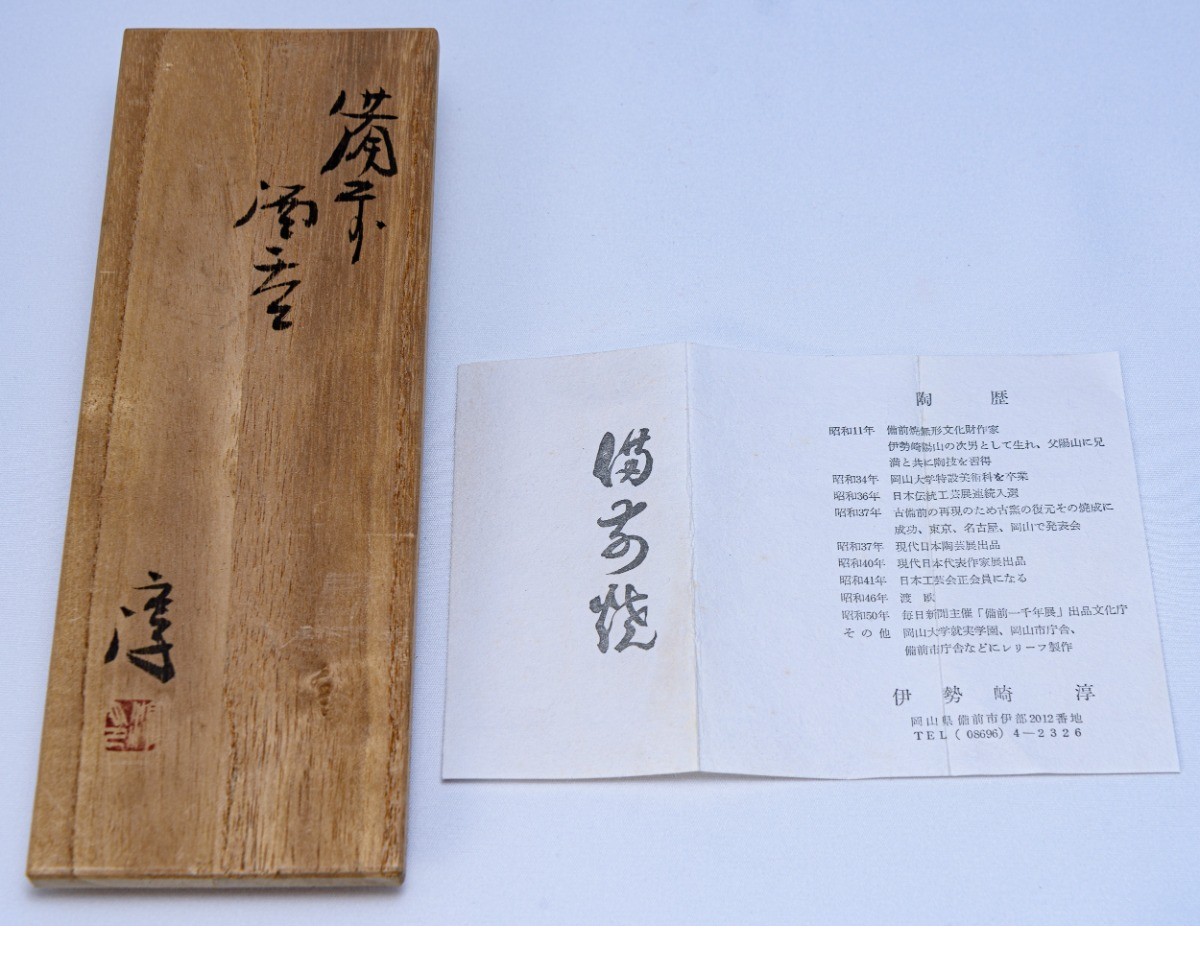 備前
酒呑
淳
備前焼
陶歴
昭和11年 備前焼無形文化財作家
伊勢崎陽山の次男として生れ、父陽山に兄
満と共に陶技を習得
昭和34年 岡山大学特設美術科を卒業
昭和36年 日本伝統工芸展連続入選
昭和37年 古備前の再現のため古窯の復元その焼成に
成功、東京、名古屋、岡山で発表会
昭和37年 現代日本陶芸展出品
昭和40年 現代日本代表作家展出品
昭和41年 日本工芸会正会員になる
昭和46年 渡欧
昭和50年 毎日新聞主催「備前一千年展」出品文化庁
その他 岡山大学就実学園、岡山市庁舎、
備前市庁舎などにレリーフ製作
伊勢崎 淳
岡山県備前市伊部2012番地
TEL(08696)4-2326